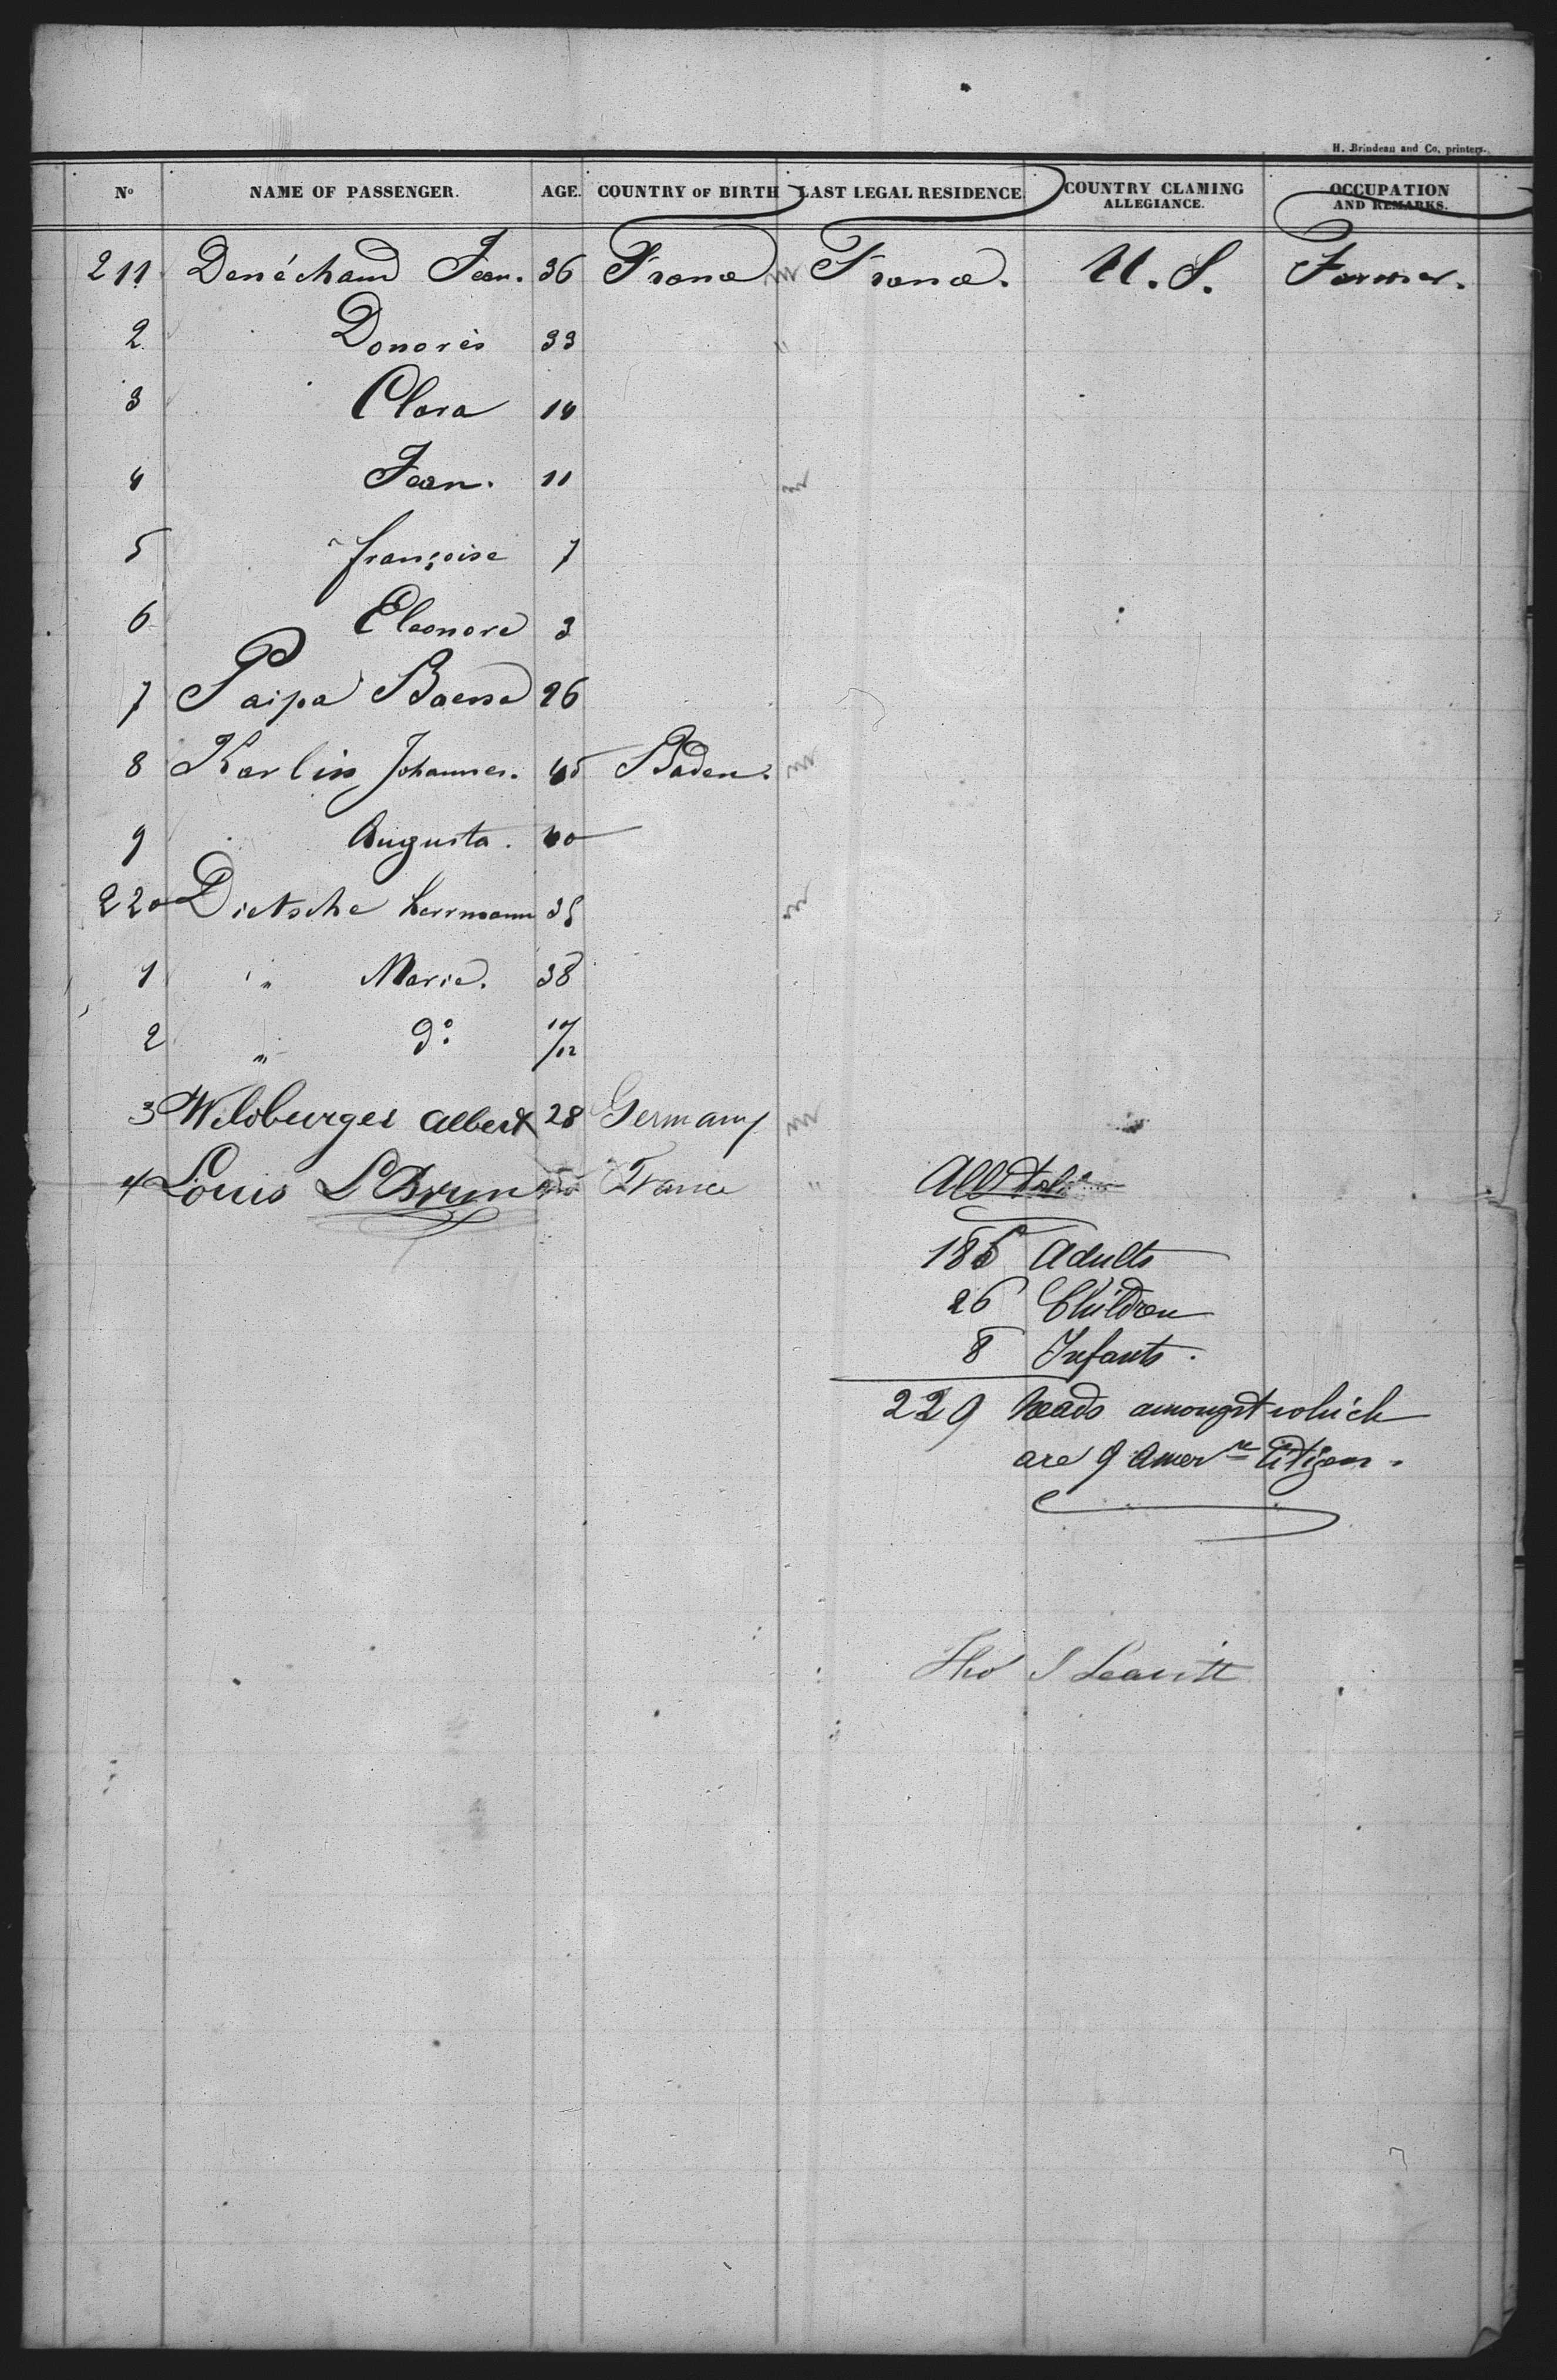 H. Brindeau and Co, printers.
No NAME OF PASSENGER. AGE. COUNTRY OF BIRTH LAST LEGAL RESIDENCE. COUNTRY CLAMING ALLEGIANCE. OCCUPATION AND REMARKS.
211 Denéchaud Jean. 36 France France. U.S. Farmer.
2 33
3 Clara 14
4 Jean. 11
5 françoise 7
6 Eleonore 3
7 Paipa 26
8 Karlin Johannes. 45 Baden.
9 Augusta. 40
220 Dietsche herrmann 35
1 " Marie. 38
2 " do
3 Wildburger Albert 28 Germany
4 Louis LeBrun France "
185 Adults
26 Children
8 Infants.
229 heads amongst which
are 9 Amern Citizens.
Tho S Leavitt